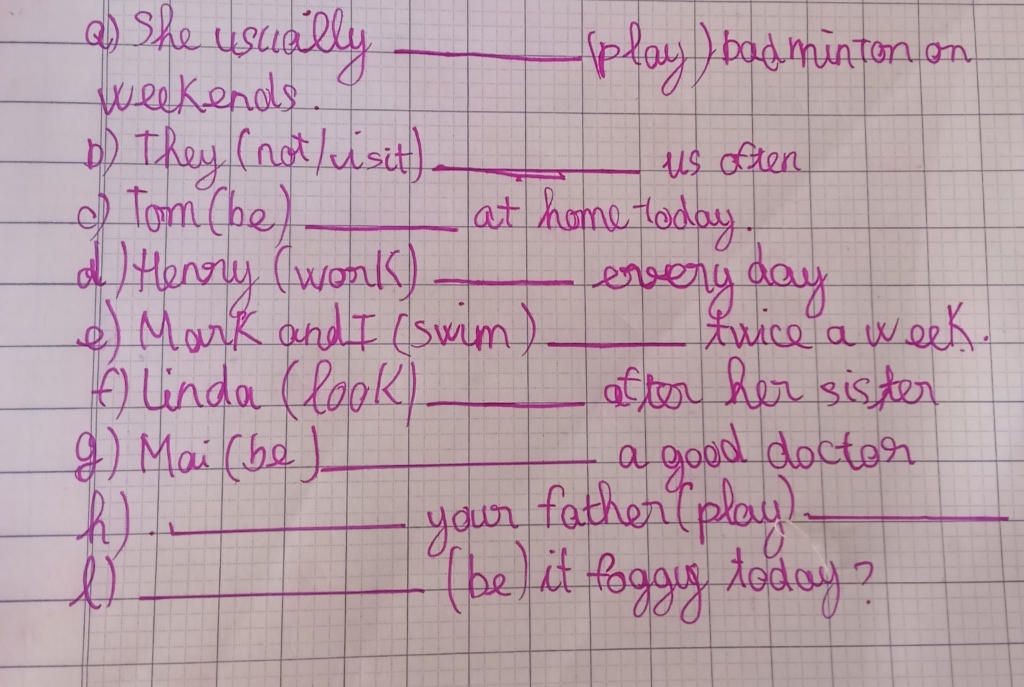 a) She usually ________ (play) badminton on
weekends.
b) They (not/visit) ________ us often
c) Tom (be) ________ at home today.
d) Henry (work) ________ every day
e) Mark and I (swim) ________ twice a week.
f) Linda (look) ________ after her sister
g) Mai (be) ________ a good doctor
h) . ________ your father (play) ________
l) ________ (be) it foggy today?